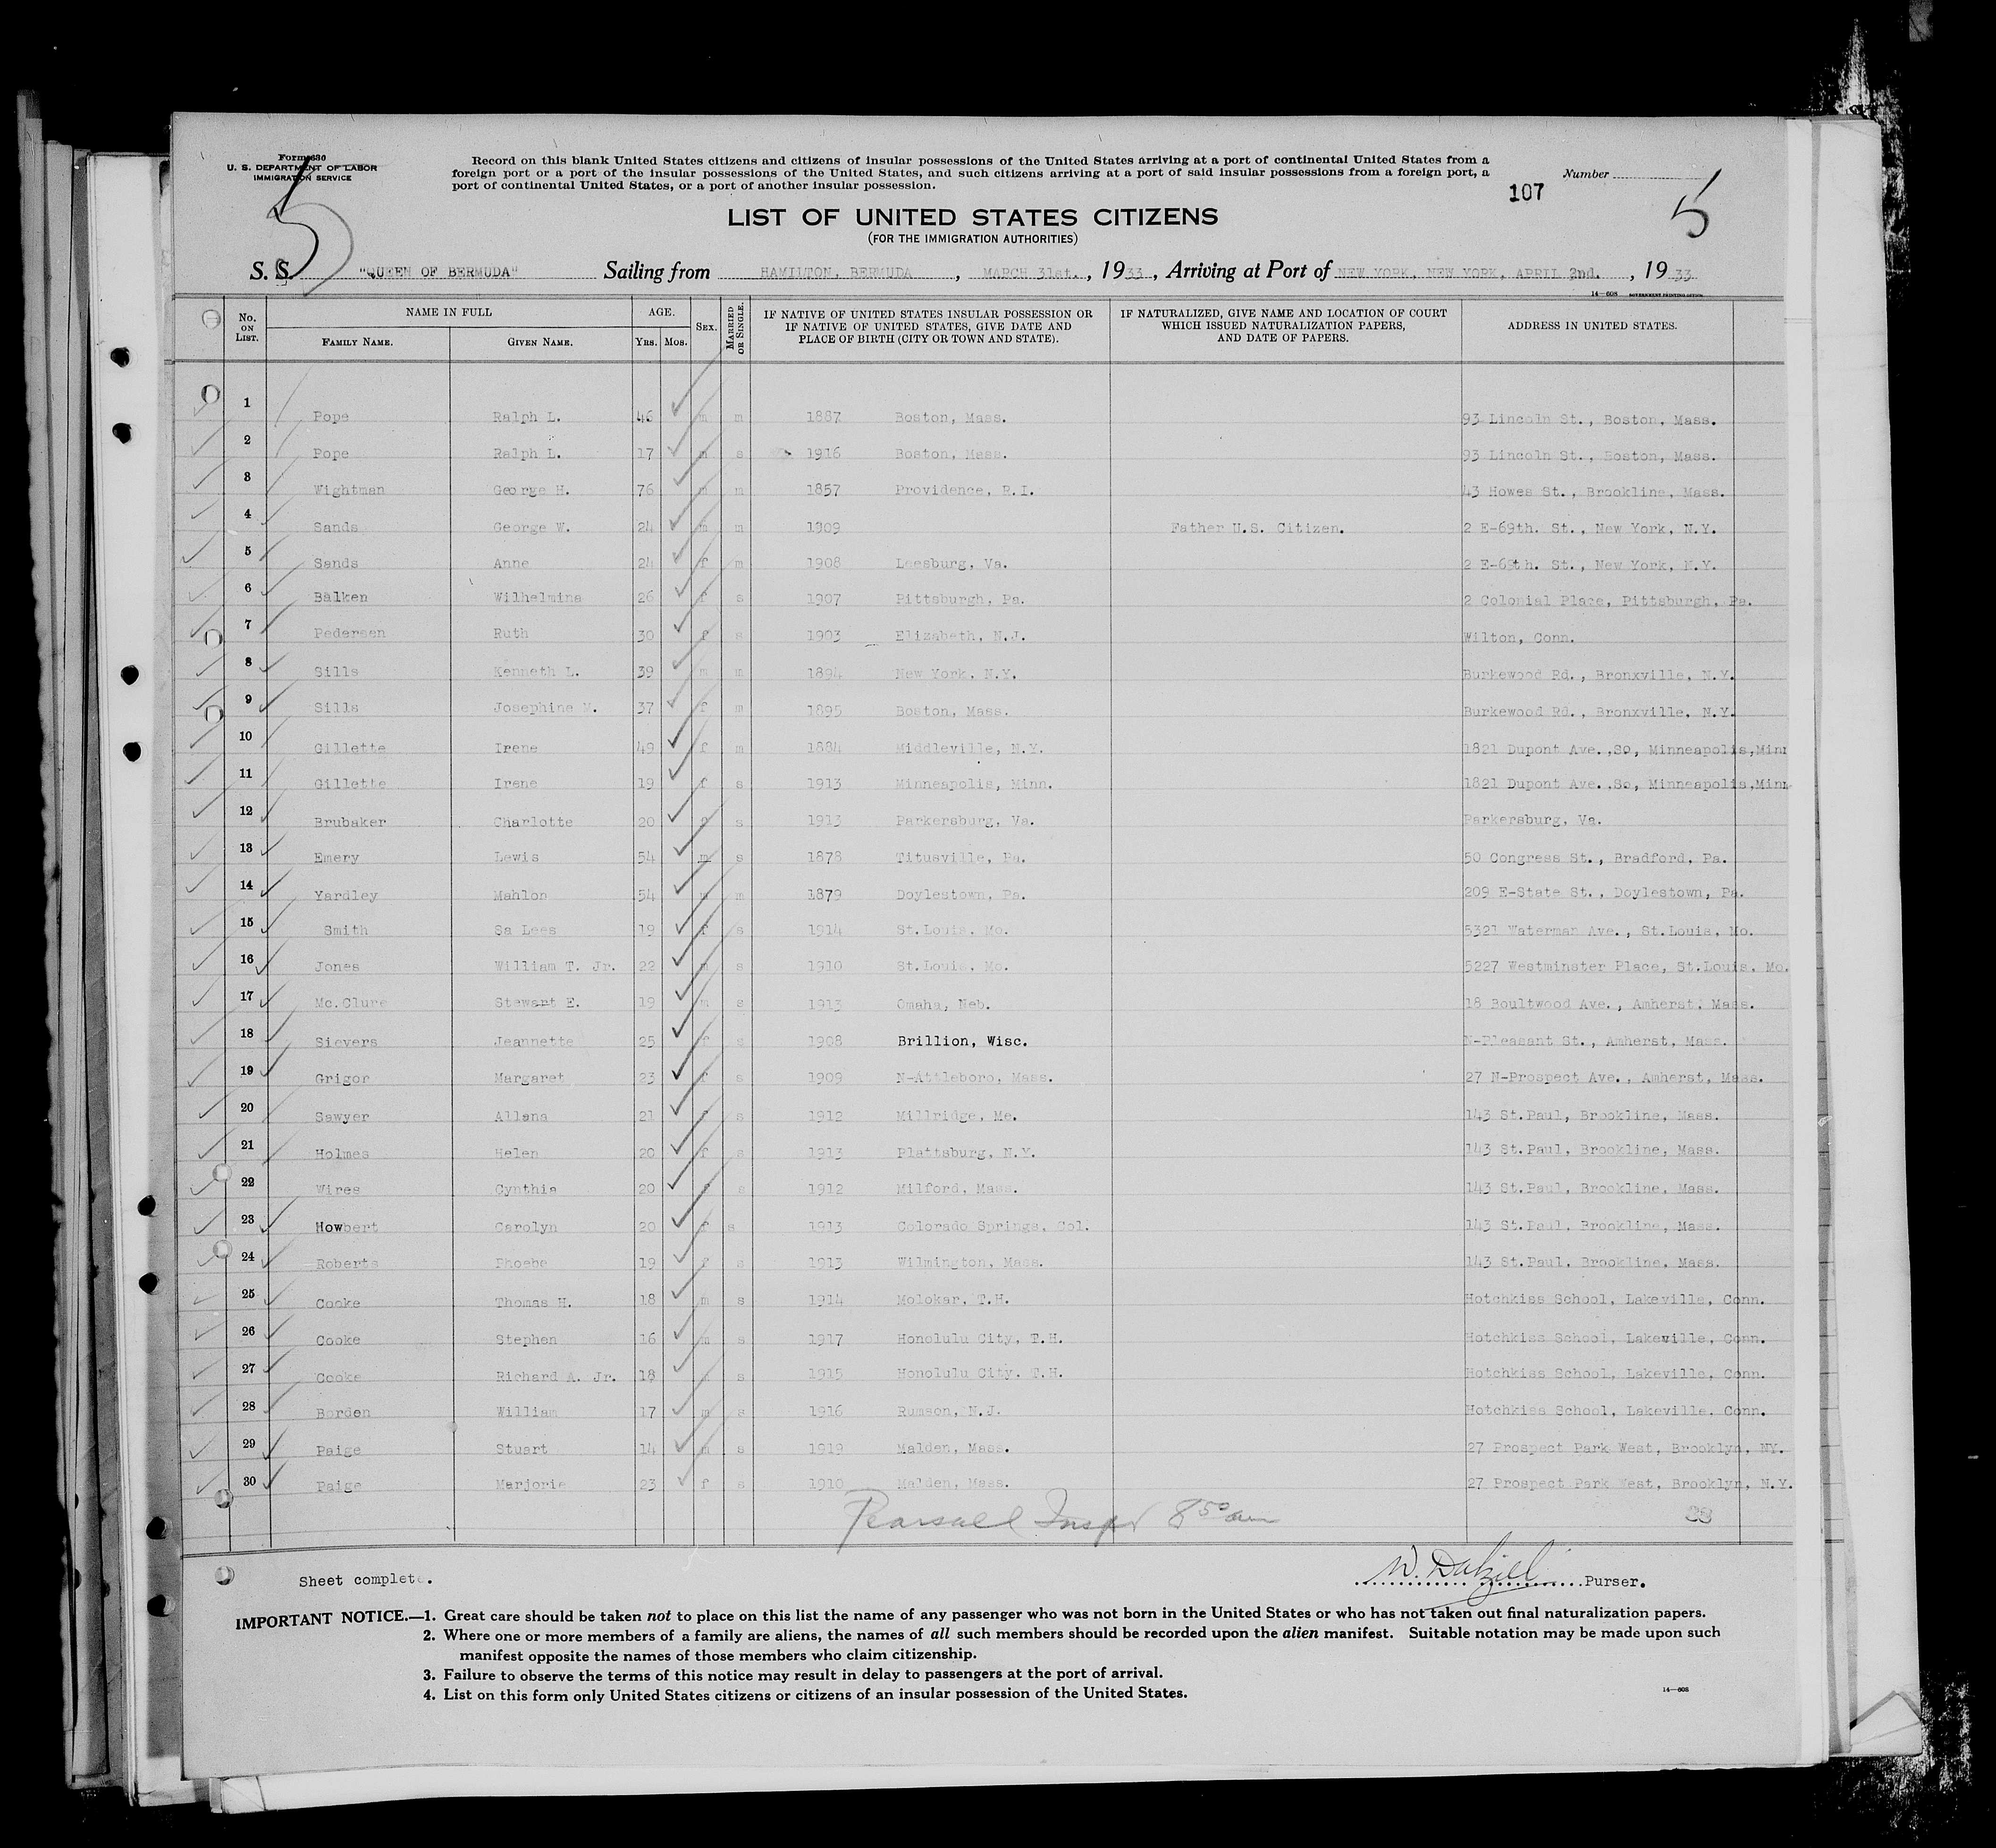 Form 630
U. S. DEPARTMENT OF LABOR
IMMIGRATION SERVICE
Record on this blank United States citizens and citizens of insular possessions of the United States arriving at a port of continental United States from a
foreign port or a port of the insular possessions of the United States, and such citizens arriving at a port of said insular possessions from a foreign port, a
port of continental United States, or a port of another insular possession.
Number
107
5
5
LIST OF UNITED STATES CITIZENS
(FOR THE IMMIGRATION AUTHORITIES)
S. S. "QUEEN OF BERMUDA" Sailing from HAMILTON, BERMUDA, MARCH 31st., 1933, Arriving at Port of NEW YORK, NEW YORK, APRIL 2nd., 1933
14—608 GOVERNMENT PRINTING OFFICE
No. ON LIST. NAME IN FULL FAMILY NAME. GIVEN NAME. AGE. YRS. MOS. SEX. MARRIED OR SINGLE. IF NATIVE OF UNITED STATES INSULAR POSSESSION OR IF NATIVE OF UNITED STATES, GIVE DATE AND PLACE OF BIRTH (CITY OR TOWN AND STATE). IF NATURALIZED, GIVE NAME AND LOCATION OF COURT WHICH ISSUED NATURALIZATION PAPERS, AND DATE OF PAPERS. ADDRESS IN UNITED STATES.
1 Pope Ralph L. 46 m m 1887 Boston, Mass. 93 Lincoln St., Boston, Mass.
2 Pope Ralph L. 17 m s 1916 Boston, Mass. 93 Lincoln St., Boston, Mass.
3 Wightman George H. 76 m m 1857 Providence, R.I. 43 Howes St., Brookline, Mass.
4 Sands George W. 24 m m 1909 Father U.S. Citizen. 2 E-69th. St., New York, N.Y.
5 Sands Anne 24 f m 1908 Leesburg, Va. 2 E-69th. St., New York, N.Y.
6 Balken Wilhelmina 26 f s 1907 Pittsburgh, Pa. 2 Colonial Place, Pittsburgh, Pa.
7 Pedersen Ruth 30 f s 1903 Elizabeth, N.J. Wilton, Conn.
8 Sills Kenneth L. 39 m m 1894 New York, N.Y. Burkewood Rd., Bronxville, N.Y.
9 Sills Josephine M. 37 f m 1895 Boston, Mass. Burkewood Rd., Bronxville, N.Y.
10 Gillette Irene 49 f m 1884 Middleville, N.Y. 1821 Dupont Ave.,So, Minneapolis,Minn
11 Gillette Irene 19 f s 1913 Minneapolis, Minn. 1821 Dupont Ave.,So, Minneapolis,Minn
12 Brubaker Charlotte 20 f s 1913 Parkersburg, Va. Parkersburg, Va.
13 Emery Lewis 54 m s 1878 Titusville, Pa. 50 Congress St., Bradford, Pa.
14 Yardley Mahlon 54 m m 1879 Doylestown, Pa. 209 E-State St., Doylestown, Pa.
15 Smith Sa Lees 19 f s 1914 St.Louis, Mo. 5321 Waterman Ave., St.Louis, Mo.
16 Jones William T. Jr. 22 m s 1910 St.Louis, Mo. 5227 Westminster Place, St.Louis, Mo.
17 Mc.Clure Stewart E. 19 m s 1913 Omaha, Neb. 18 Boultwood Ave., Amherst, Mass.
18 Sievers Jeannette 25 f s 1908 Brillion, Wisc. N-Pleasant St., Amherst, Mass.
19 Grigor Margaret 23 f s 1909 N-Attleboro, Mass. 27 N-Prospect Ave., Amherst, Mass.
20 Sawyer Allena 21 f s 1912 Millridge, Me. 143 St.Paul, Brookline, Mass.
21 Holmes Helen 20 f s 1913 Plattsburg, N.Y. 143 St.Paul, Brookline, Mass.
22 Wires Cynthia 20 f s 1912 Milford, Mass. 143 St.Paul, Brookline, Mass.
23 Howbert Carolyn 20 f s 1913 Colorado Springs, Col. 143 St.Paul, Brookline, Mass.
24 Roberts Phoebe 19 f s 1913 Wilmington, Mass. 143 St.Paul, Brookline, Mass.
25 Cooke Thomas H. 18 m s 1914 Molokar, T.H. Hotchkiss School, Lakeville, Conn.
26 Cooke Stephen 16 m s 1917 Honolulu City, T.H. Hotchkiss School, Lakeville, Conn.
27 Cooke Richard A. Jr. 18 m s 1915 Honolulu City, T.H. Hotchkiss School, Lakeville, Conn.
28 Borden William 17 m s 1916 Rumson, N.J. Hotchkiss School, Lakeville, Conn.
29 Paige Stuart 14 m s 1919 Malden, Mass. 27 Prospect Park West, Brooklyn, NY.
30 Paige Marjorie 23 f s 1910 Malden, Mass. 27 Prospect Park West, Brooklyn, N.Y.
Pearsall Inspr 8 50 am
Sheet complete.
W. Dalziel Purser.
IMPORTANT NOTICE.—1. Great care should be taken not to place on this list the name of any passenger who was not born in the United States or who has not taken out final naturalization papers.
2. Where one or more members of a family are aliens, the names of all such members should be recorded upon the alien manifest. Suitable notation may be made upon such
manifest opposite the names of those members who claim citizenship.
3. Failure to observe the terms of this notice may result in delay to passengers at the port of arrival.
4. List on this form only United States citizens or citizens of an insular possession of the United States.
14—608